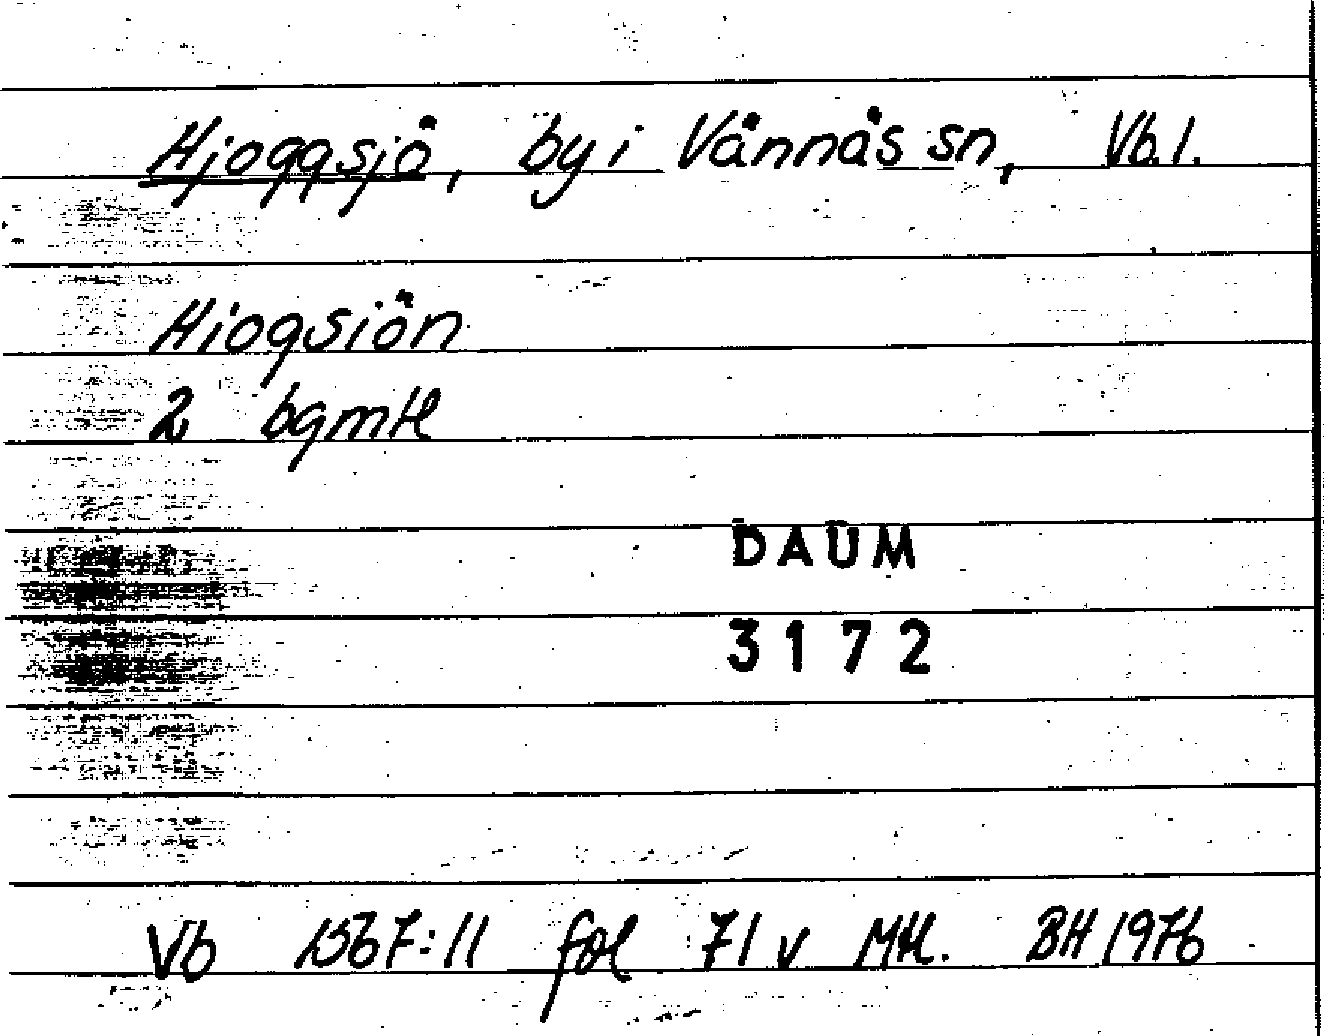 Hjoggsjö, by i Vännäs sn, Vb. l.
Hiogsiön
2 bgmtl
DAUM
3172
Vb 1567:11 fol 71 v Mtl. BH 1976